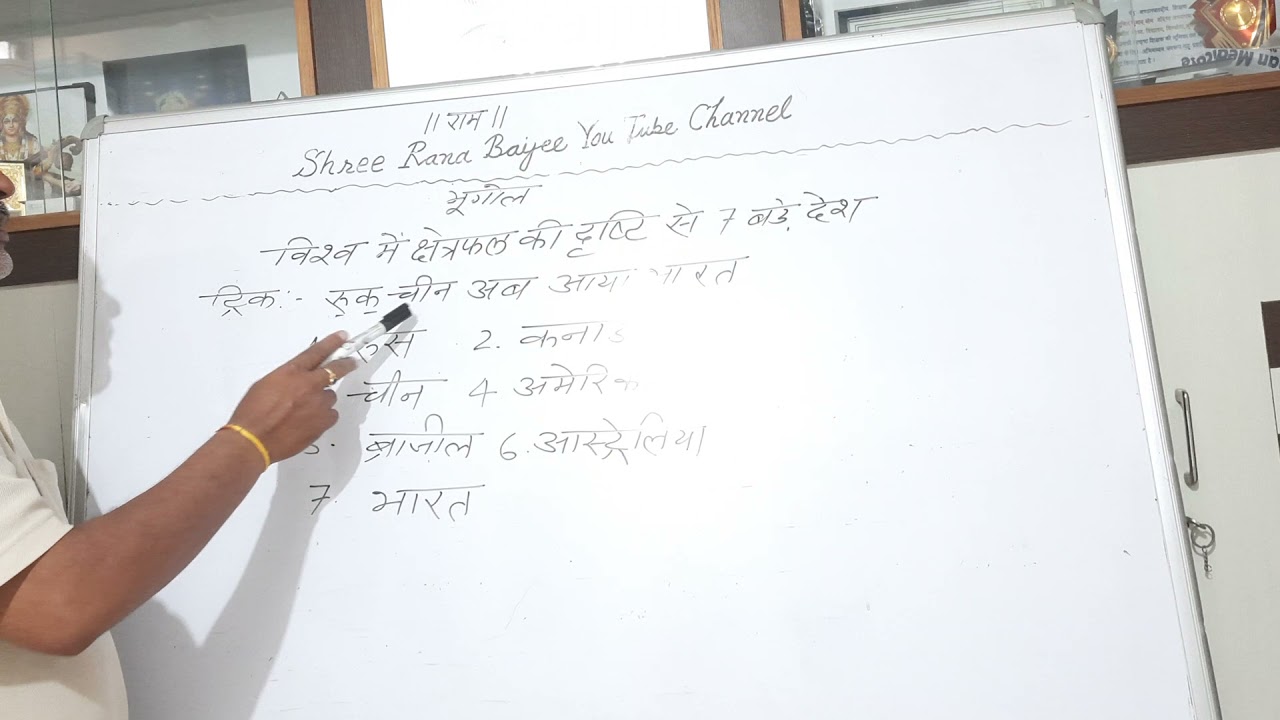 ॥ राम ॥
Shree Rana Baijee You Tube Channel
भूगोल
विश्व में क्षेत्रफल की दृष्टि से 7 बड़े देश
ट्रिक:- रूकु चीन अब आया भारत
रूस 2. कनाड
चीन 4 अमेरिक
ब्राजील 6. आस्ट्रेलिया
7. भारत
an Medicore